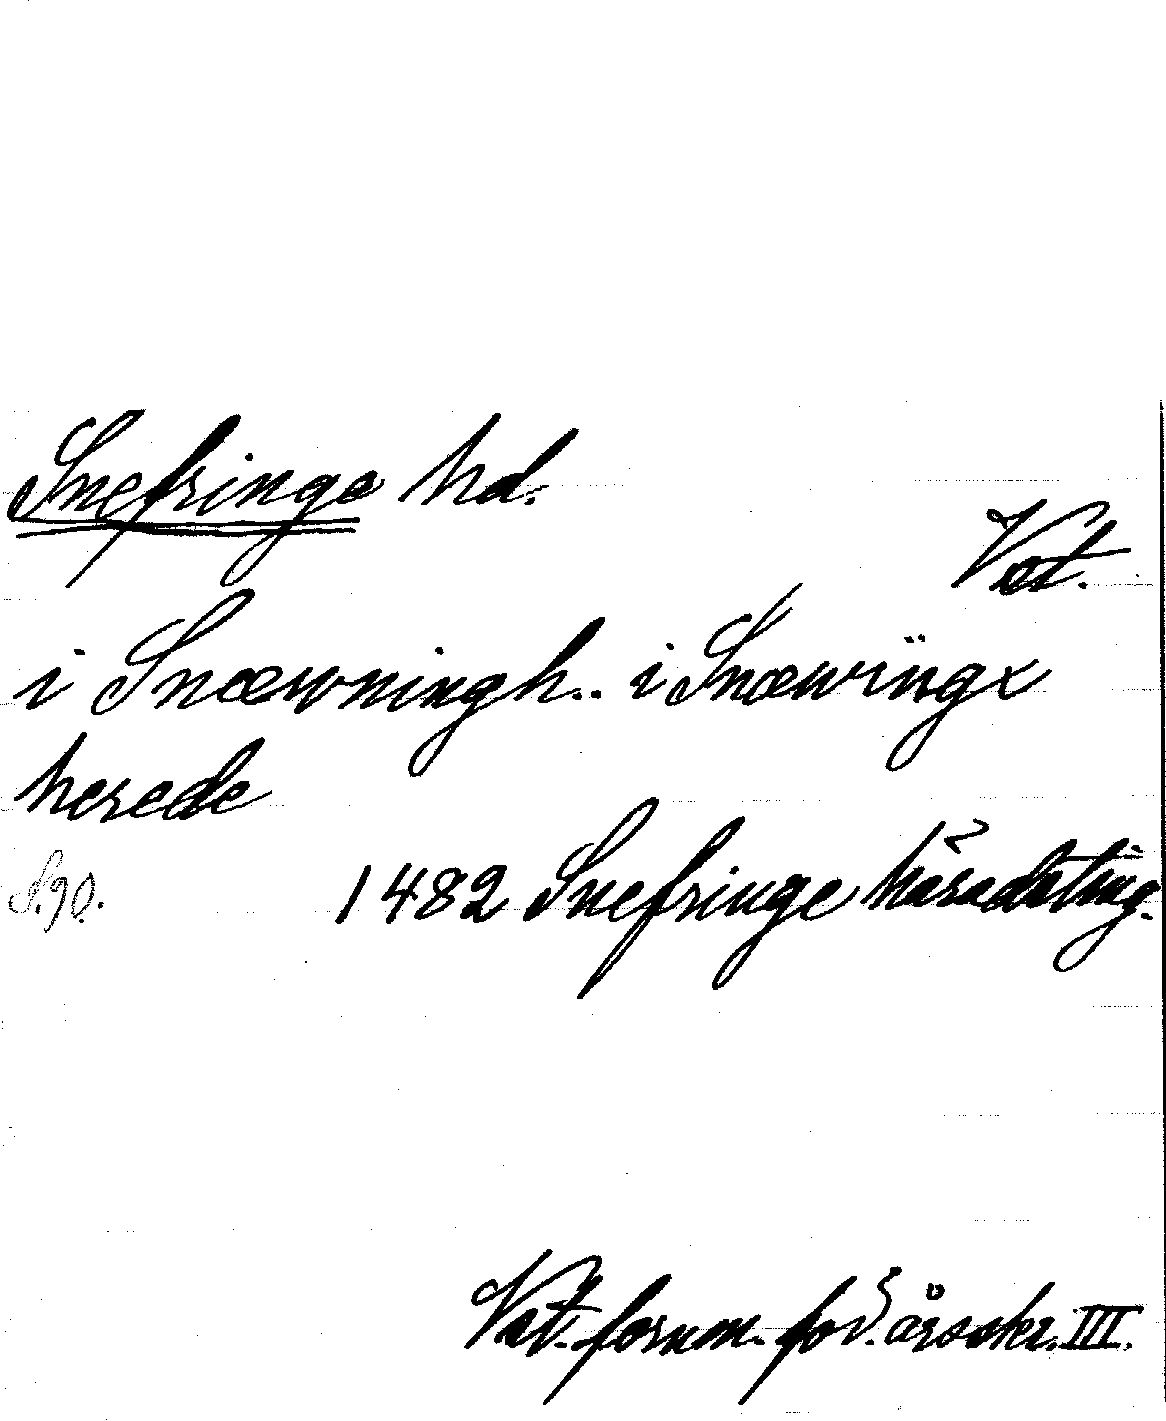 Snefringe hd.
Vst.
i Snæwningh.. i Snæwringx
herede
S. 90. 1482 Snefringe häradsting.
Vst. fornm. för. årsskr. III.